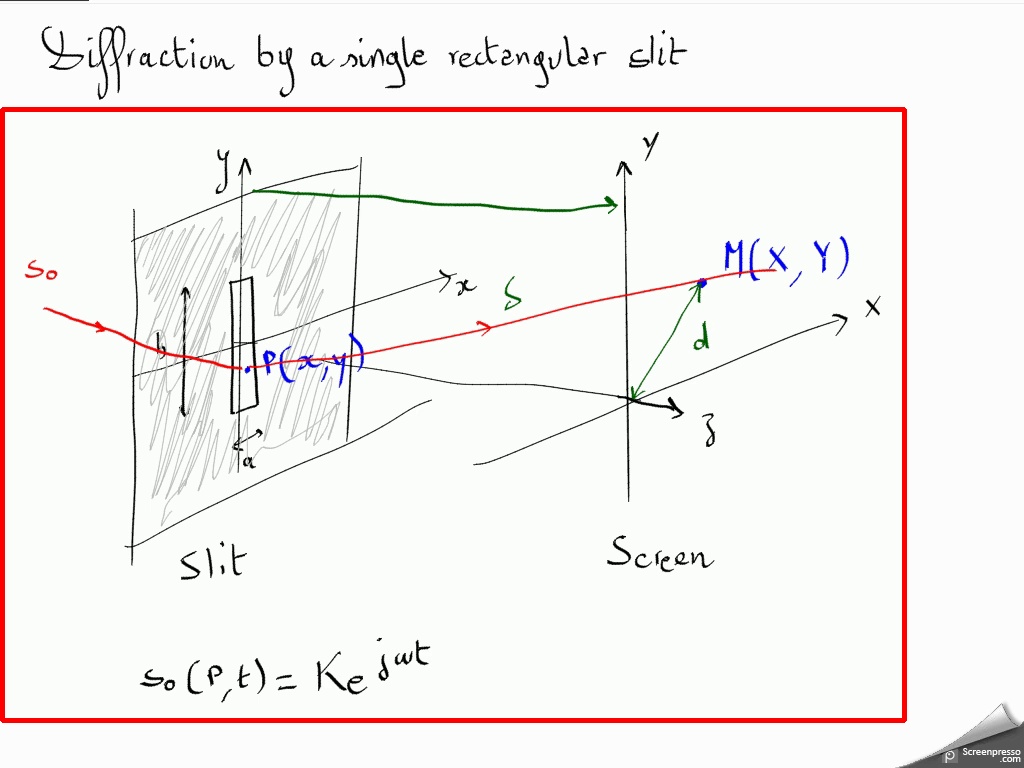 Diffraction by a single rectangular slit
y
Y
So
M(X, Y)
x
S
X
b
P(x,y)
d
z
a
Slit
Screen
so(P,t) = Ke^jωt
Screenpresso
.com